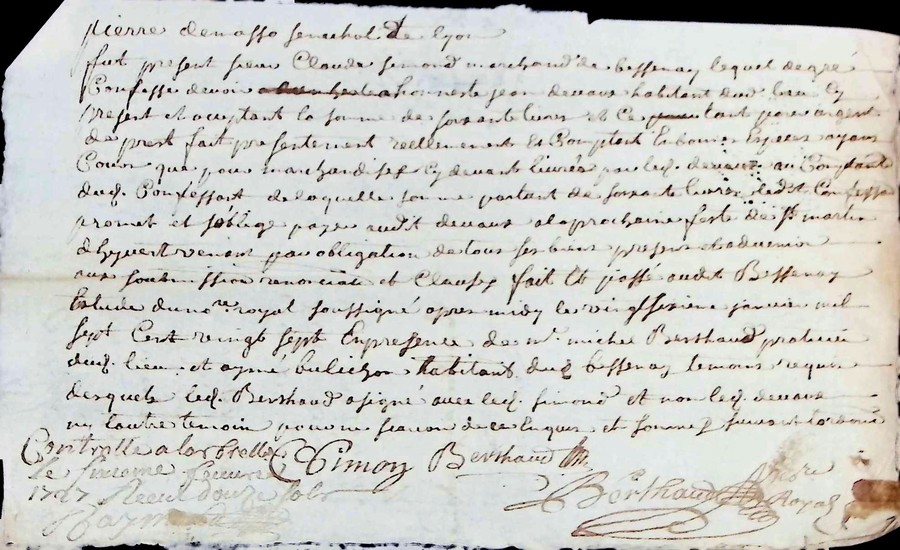 pierre demasso senechol de lyon
fut present sieur Claude simond marchand de bessenay lequel de gré
Confesse devoir a honneste jean devaux habitant dud lieu Cy
present et acceptant la somme de soixante livres et Ce tant pour argent
de prest fait presentement reellement Et Comptant En bonnes Especes ayans
Cours que pour marchandises Cy devant livrées par led. devaux au Comptant
dud. Confessant de laquelle somme partant de soixante livres led.t Confessant
promet et soblige payer audit devaux a la prochaine feste de st martin
dhyvert venant par obligation de tous ses biens presens et advenir
aux soubmissions renonciat et Clauses fait Et passé audit Bessenay
Estude du no.re royal soussigné apres midy le vingt janvier mil
sept Cent vingt sept En presence de m.r michel Berthaud praticien
dud. lieu, et aymé habitant dud bessenay temoins requis
desquels led. Berthaud a signé avec led. simond et non led. devaux
ny lautre temoin pour ne scavoir de ce enquis et sommés suivant lordonce
Controlle a larbrelle
le
1727 Receu douze sols
Raymond
CSimon Berthaud
Berthaud no.re Royal